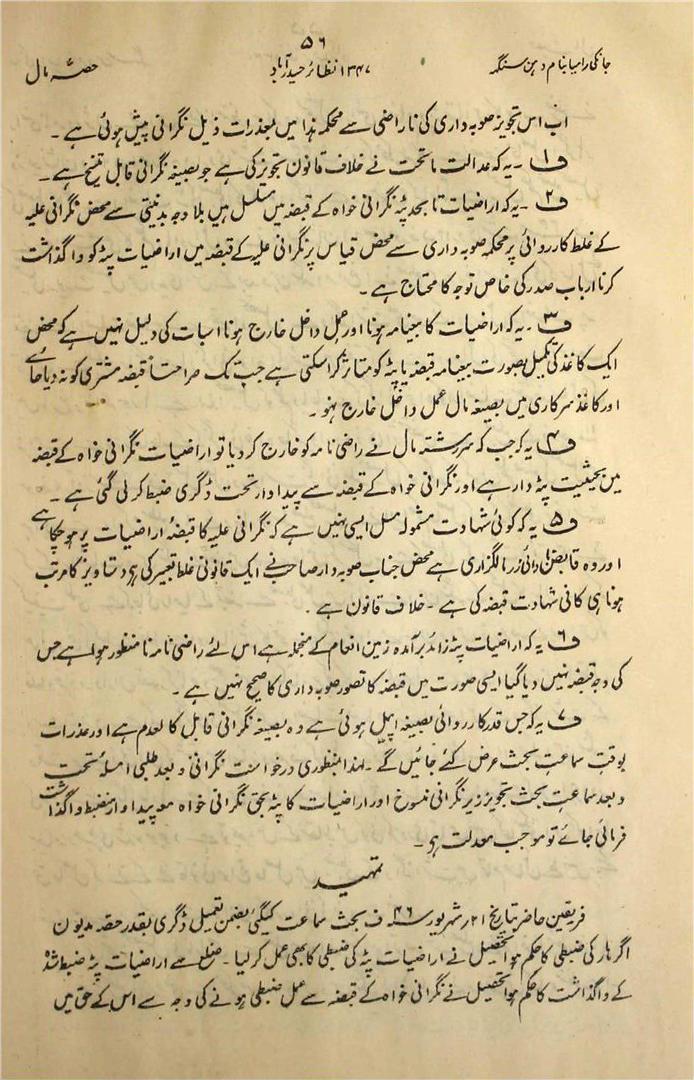 ۵۶
جانکی رامیا بنام دہن سنگہ ۱۳۴۷ نظائر حیدرآباد حصہ مال
اب اس تجویز صوبہ داری کی ناراضی سے محکمہ ہذا میں بعذرات ذیل نگرانی پیش ہوئی ہے ۔
ف۱ ۔ یہ کہ عدالت ماتحت نے خلاف قانون تجویز کی ہے جو بصیغہ نگرانی قابل تنسیخ ہے ۔
ف۲ ۔ یہ کہ اراضیات تا بحد پٹہ نگرانی خواہ کے قبضہ میں مسلسل ہیں بلا وجہ بدنیتی سے محض نگرانی علیہ
کے غلط کارروائی پر محکمہ صوبہ داری سے محض قیاس پر نگرانی علیہ کے قبضہ میں اراضیات پٹہ کو واگذاشت
کرنا ارباب صدر کی خاص توجہ کا محتاج ہے ۔
ف۳ ۔ یہ کہ اراضیات کا بیعنامہ ہونا اور عمل داخل خارج ہونا اسبات کی دلیل نہیں ہے کہ محض
ایک کاغذ کی تکمیل بصورت بیعنامہ قبضہ یا پٹہ کو متاثر کرا سکتی ہے جب تک صراحتاً قبضہ مشتری کو نہ دیا جائے
اور کاغذ سرکاری میں بصیغہ مال عمل داخل خارج نہو ۔
ف۴ یہ کہ جب کہ سررشتہ مال نے راضی نامہ کو خارج کردیا تو اراضیات نگرانی خواہ کے قبضہ
میں بحیثیت پٹہ دار ہے اور نگرانی خواہ کے قبضہ سے پیداوار تحت ڈگری ضبط کر لی گئی ہے ۔
ف۵ یہ کہ کوئی شہادت مشمولہ مسل ایسی نہیں ہے کہ نگرانی علیہ کا قبضہ اراضیات پر ہو چکا ہے
اور وہ قابض ادائی زر مالگزاری ہے محض جناب صوبہ دار صاحب نے ایک قانونی غلط تعبیر کی ہے دستاویز کا مرتب
ہونا ہی کافی شہادت قبضہ کی ہے ۔ خلاف قانون ہے ۔
ف۶ یہ کہ اراضیات پٹہ زائد برآمدہ زمین انعام کے منجملہ ہے اس لئے راضی نامہ نامنظور ہوا ہے جس
کی وجہ قبضہ نہیں دیا گیا ایسی صورت میں قبضہ کا تصور صوبہ داری کا صحیح نہیں ہے ۔
ف۷ یہ کہ جس قدر کارروائی بصیغہ اپیل ہوئی ہے وہ بصیغہ نگرانی قابل کالعدم ہے اور عذرات
بوقت سماعت بحث عرض کئے جائیں گے ۔ لہذا بمنظوری درخواست نگرانی و بعد طلبی امسلہ تحت
و بعد سماعت بحث تجویز زیر نگرانی منسوخ اور اراضیات کا پٹہ بحق نگرانی خواہ معہ پیداوار منضبطہ واگذاشت
فرمائی جائے تو موجب معدلت ہو ۔
تمہید
فریقین حاضر بتاریخ ۲۱؍ شہریور سنہ ۴۶ ف بحث سماعت کیگئی بضمن تعمیل ڈگری بقدر حصہ مدیون
اگر ہار کی ضبطی کا حکم ہوا تحصیل نے اراضیات پٹہ کی ضبطی کا بھی عمل کرلیا ۔ ضلع سے اراضیات پٹہ ضبط شدہ
کے واگذاشت کا حکم ہوا تحصیل نے نگرانی خواہ کے قبضہ سے عمل ضبطی ہونے کی وجہ سے اس کے حق میں